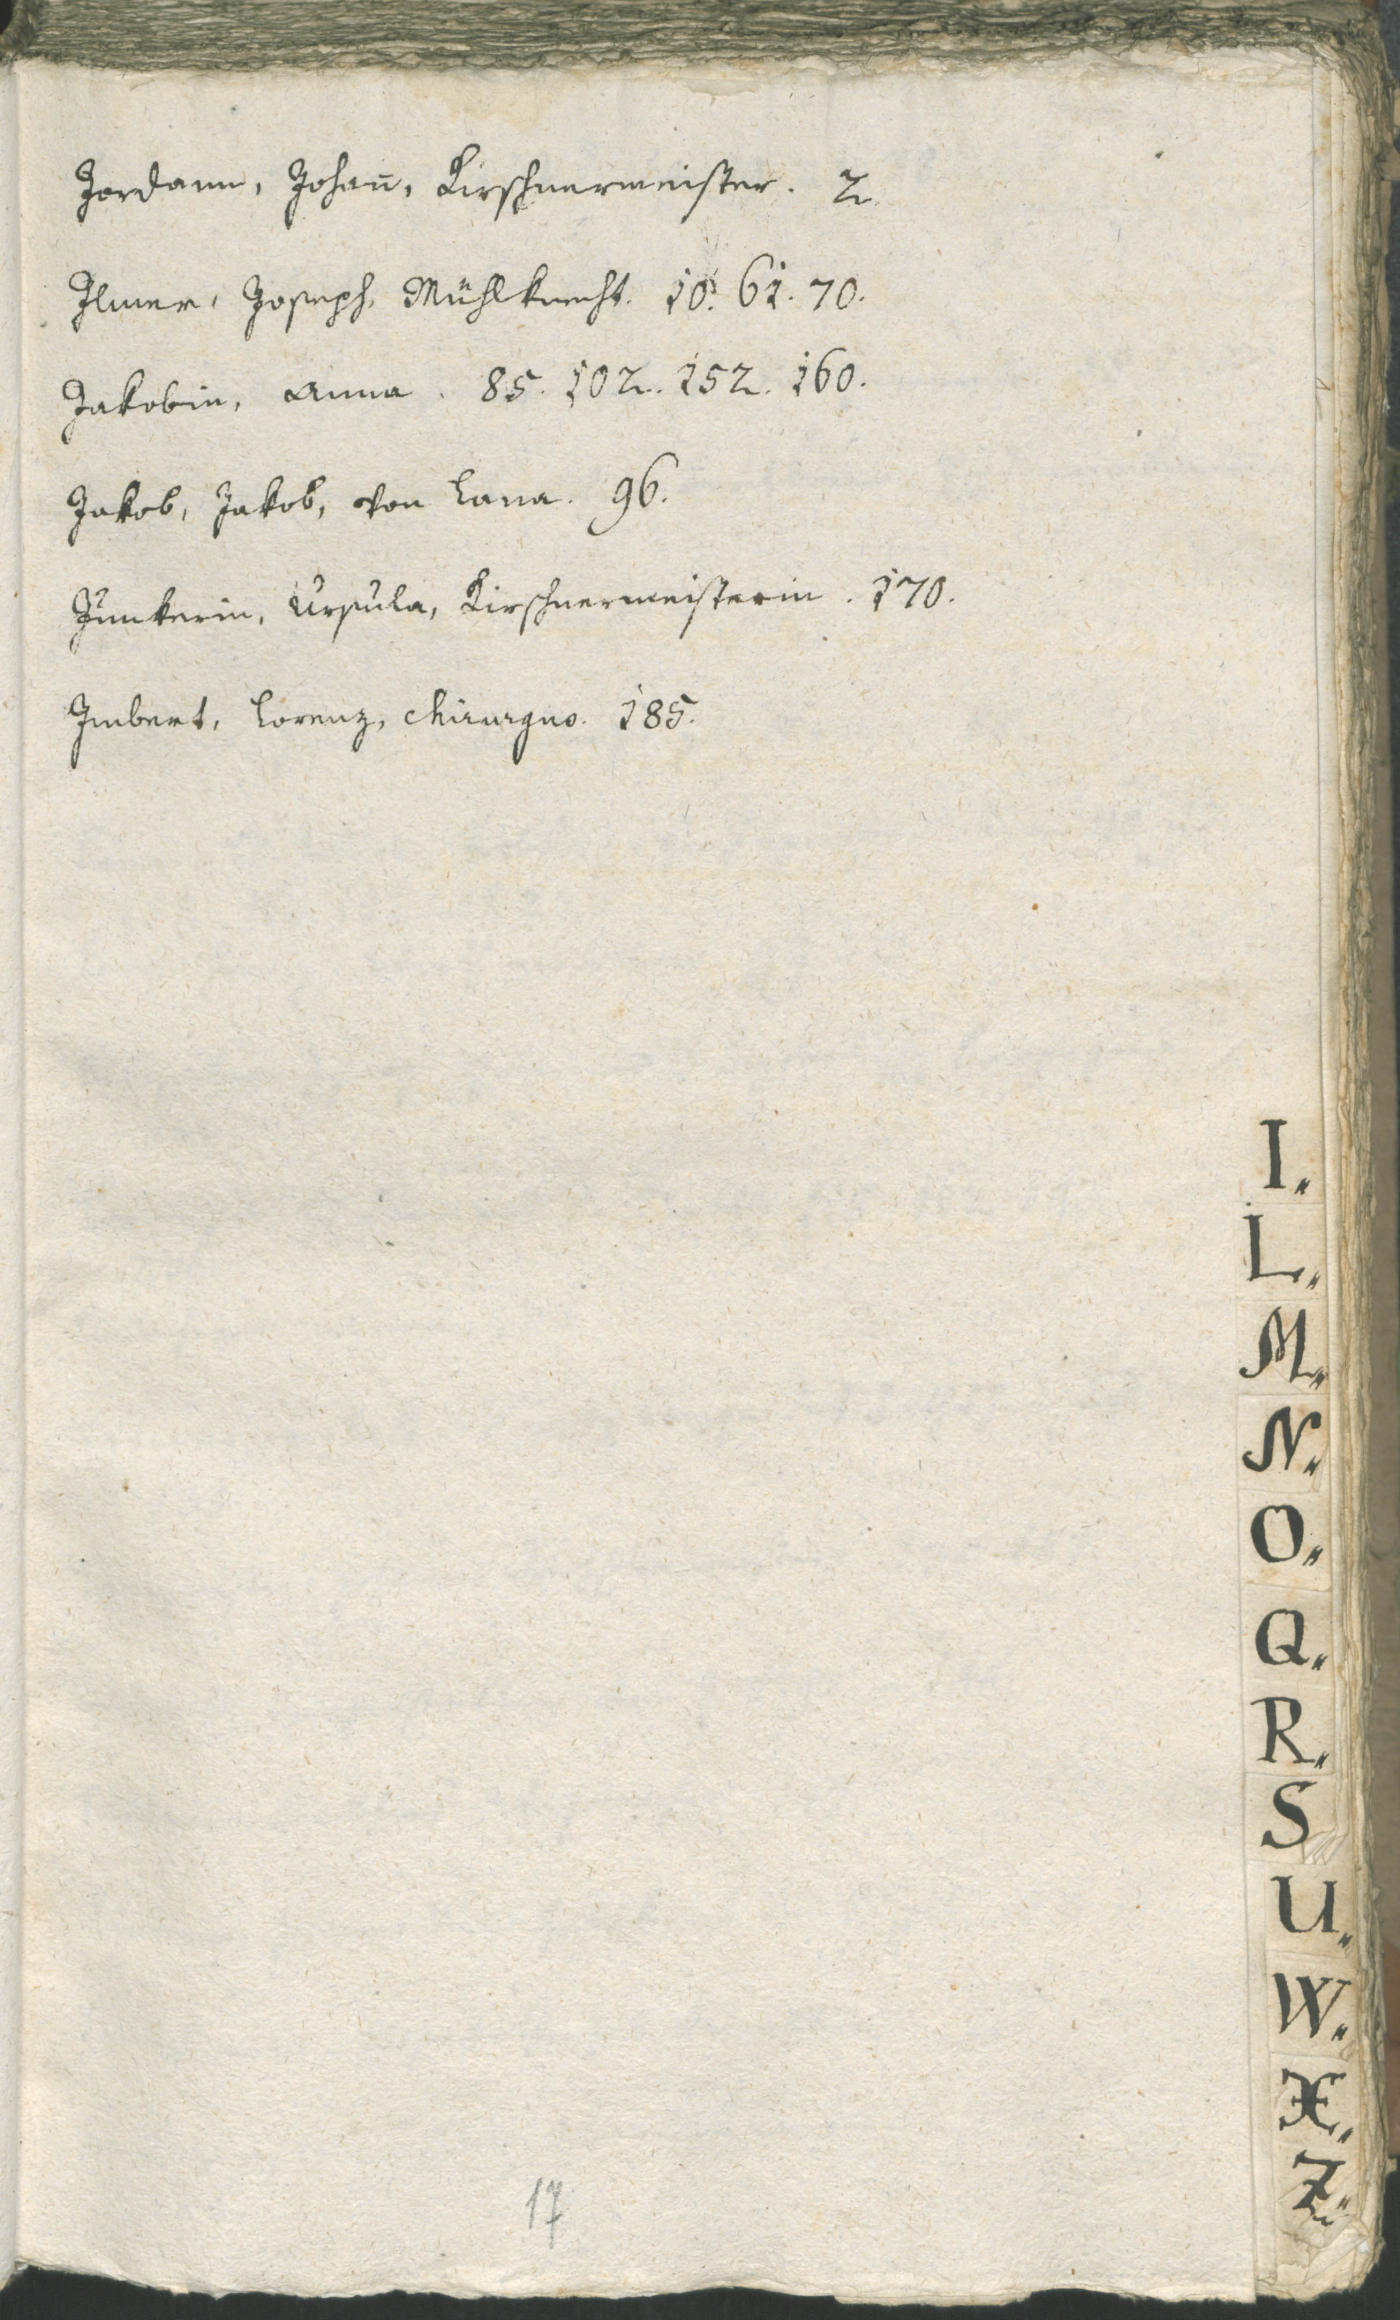 Jordann, Johan̄, Kirschnermeister. 2.
Ilmer, Joseph, Mühlknecht. 10. 61. 70.
Jakobin, Anna. 85. 102. 152. 160.
Jakob, Jakob, von Lana. 96.
Junkerin, Ursula, Kirschnermeisterin. 170.
Imbert, Lorenz, chirurgus. 185.
I„
L„
M„
N„
O„
Q„
R„
S
U„
W„
X„
Z„
17